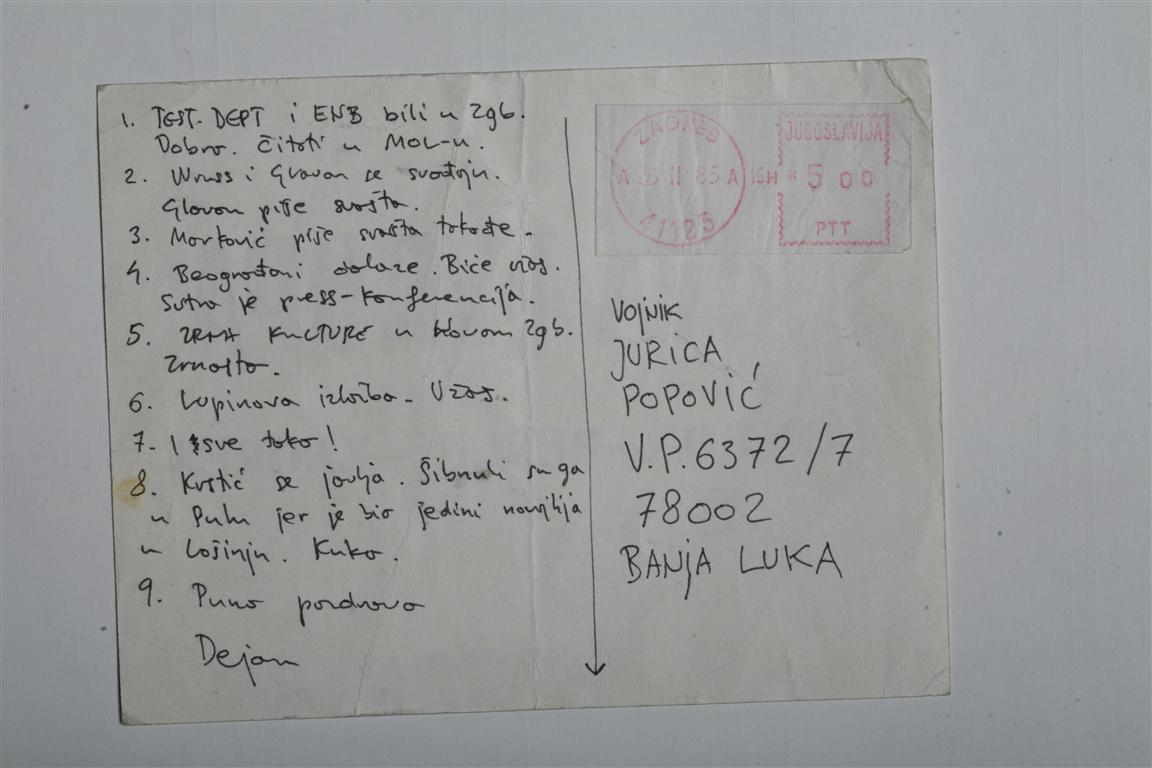 1. TEST. DEPT i ENB bili u Zgb.
Dobro. Čitati u MOL-u.
2. Wruss i Glavan se svađaju.
Glavan piše svašta.
3. Marković piše svašta također.
4. Beograđani dolaze. Biće užas.
Sutra je press-konferencija.
5. ZRMA KULTURE u Novom Zgb.
6. Lupinova izložba - Užas.
7. I sve tako!
8. Krstić se javlja. Šibnuli su ga
u Pulu jer je bio jedini
u Lošinju. Kuko.
9. Puno pozdrava
Dejan
ZAGREB
II 85 A 15H * 5 00
41123
JUGOSLAVIJA
PTT
VOJNIK
JURICA
POPOVIĆ
V.P. 6372/7
78002
BANJA LUKA